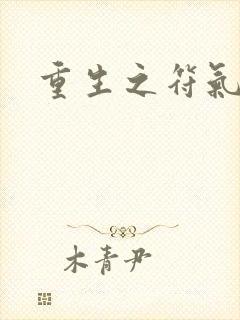 重生之符氣
木青尹